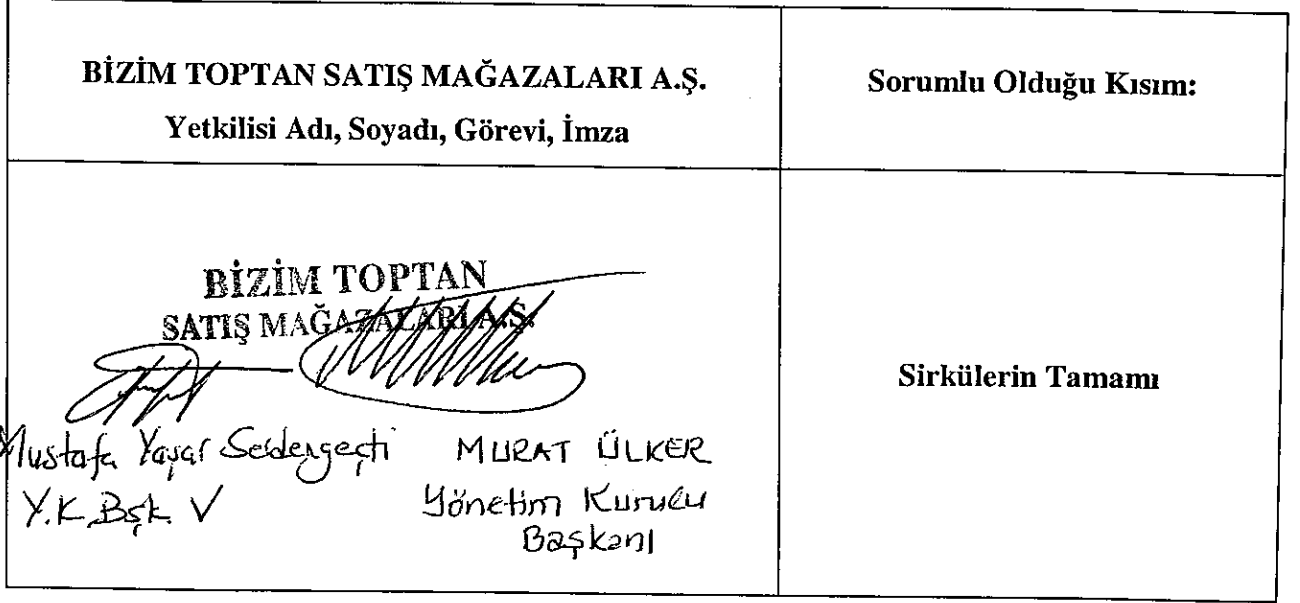 BİZİM TOPTAN SATIŞ MAĞAZALARI A.Ş.
Yetkilisi Adı, Soyadı, Görevi, İmza
Sorumlu Olduğu Kısım:
BİZİM TOPTAN
SATIŞ MAĞAZALARI A.Ş.
Mustafa Yaşar
Y.K.Bşk. V
MURAT ÜLKER
Yönetim Kurulu
Başkanı
Sirkülerin Tamamı